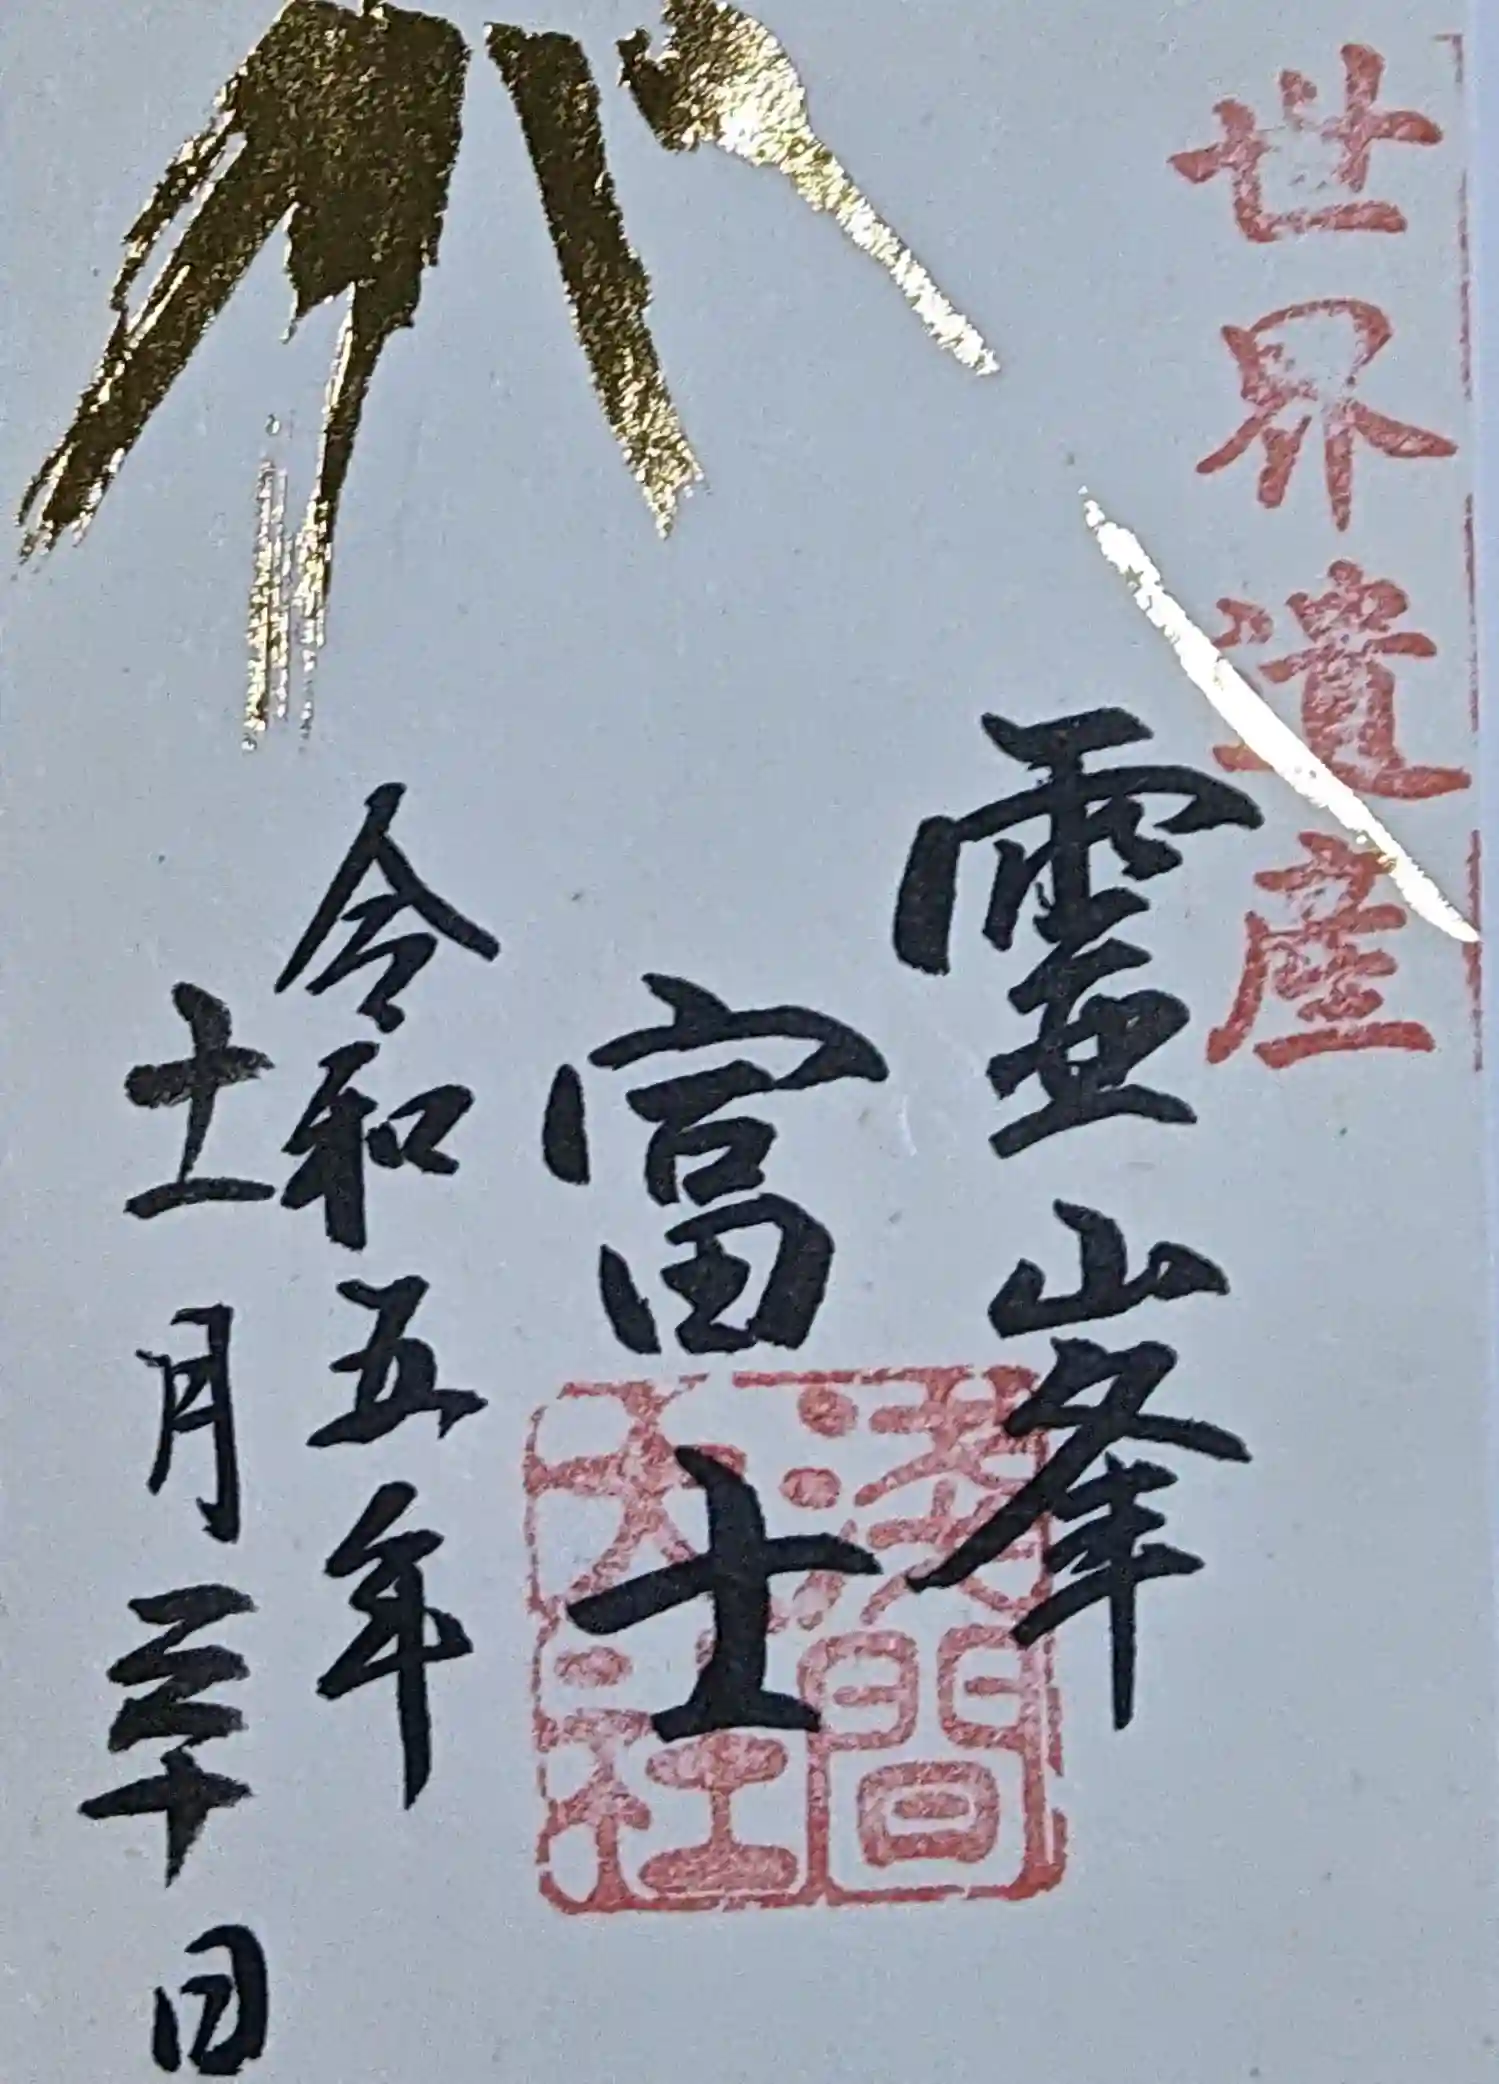 世界遺産
霊峯
富士
令和五年
十一月三十日
淺間
大社